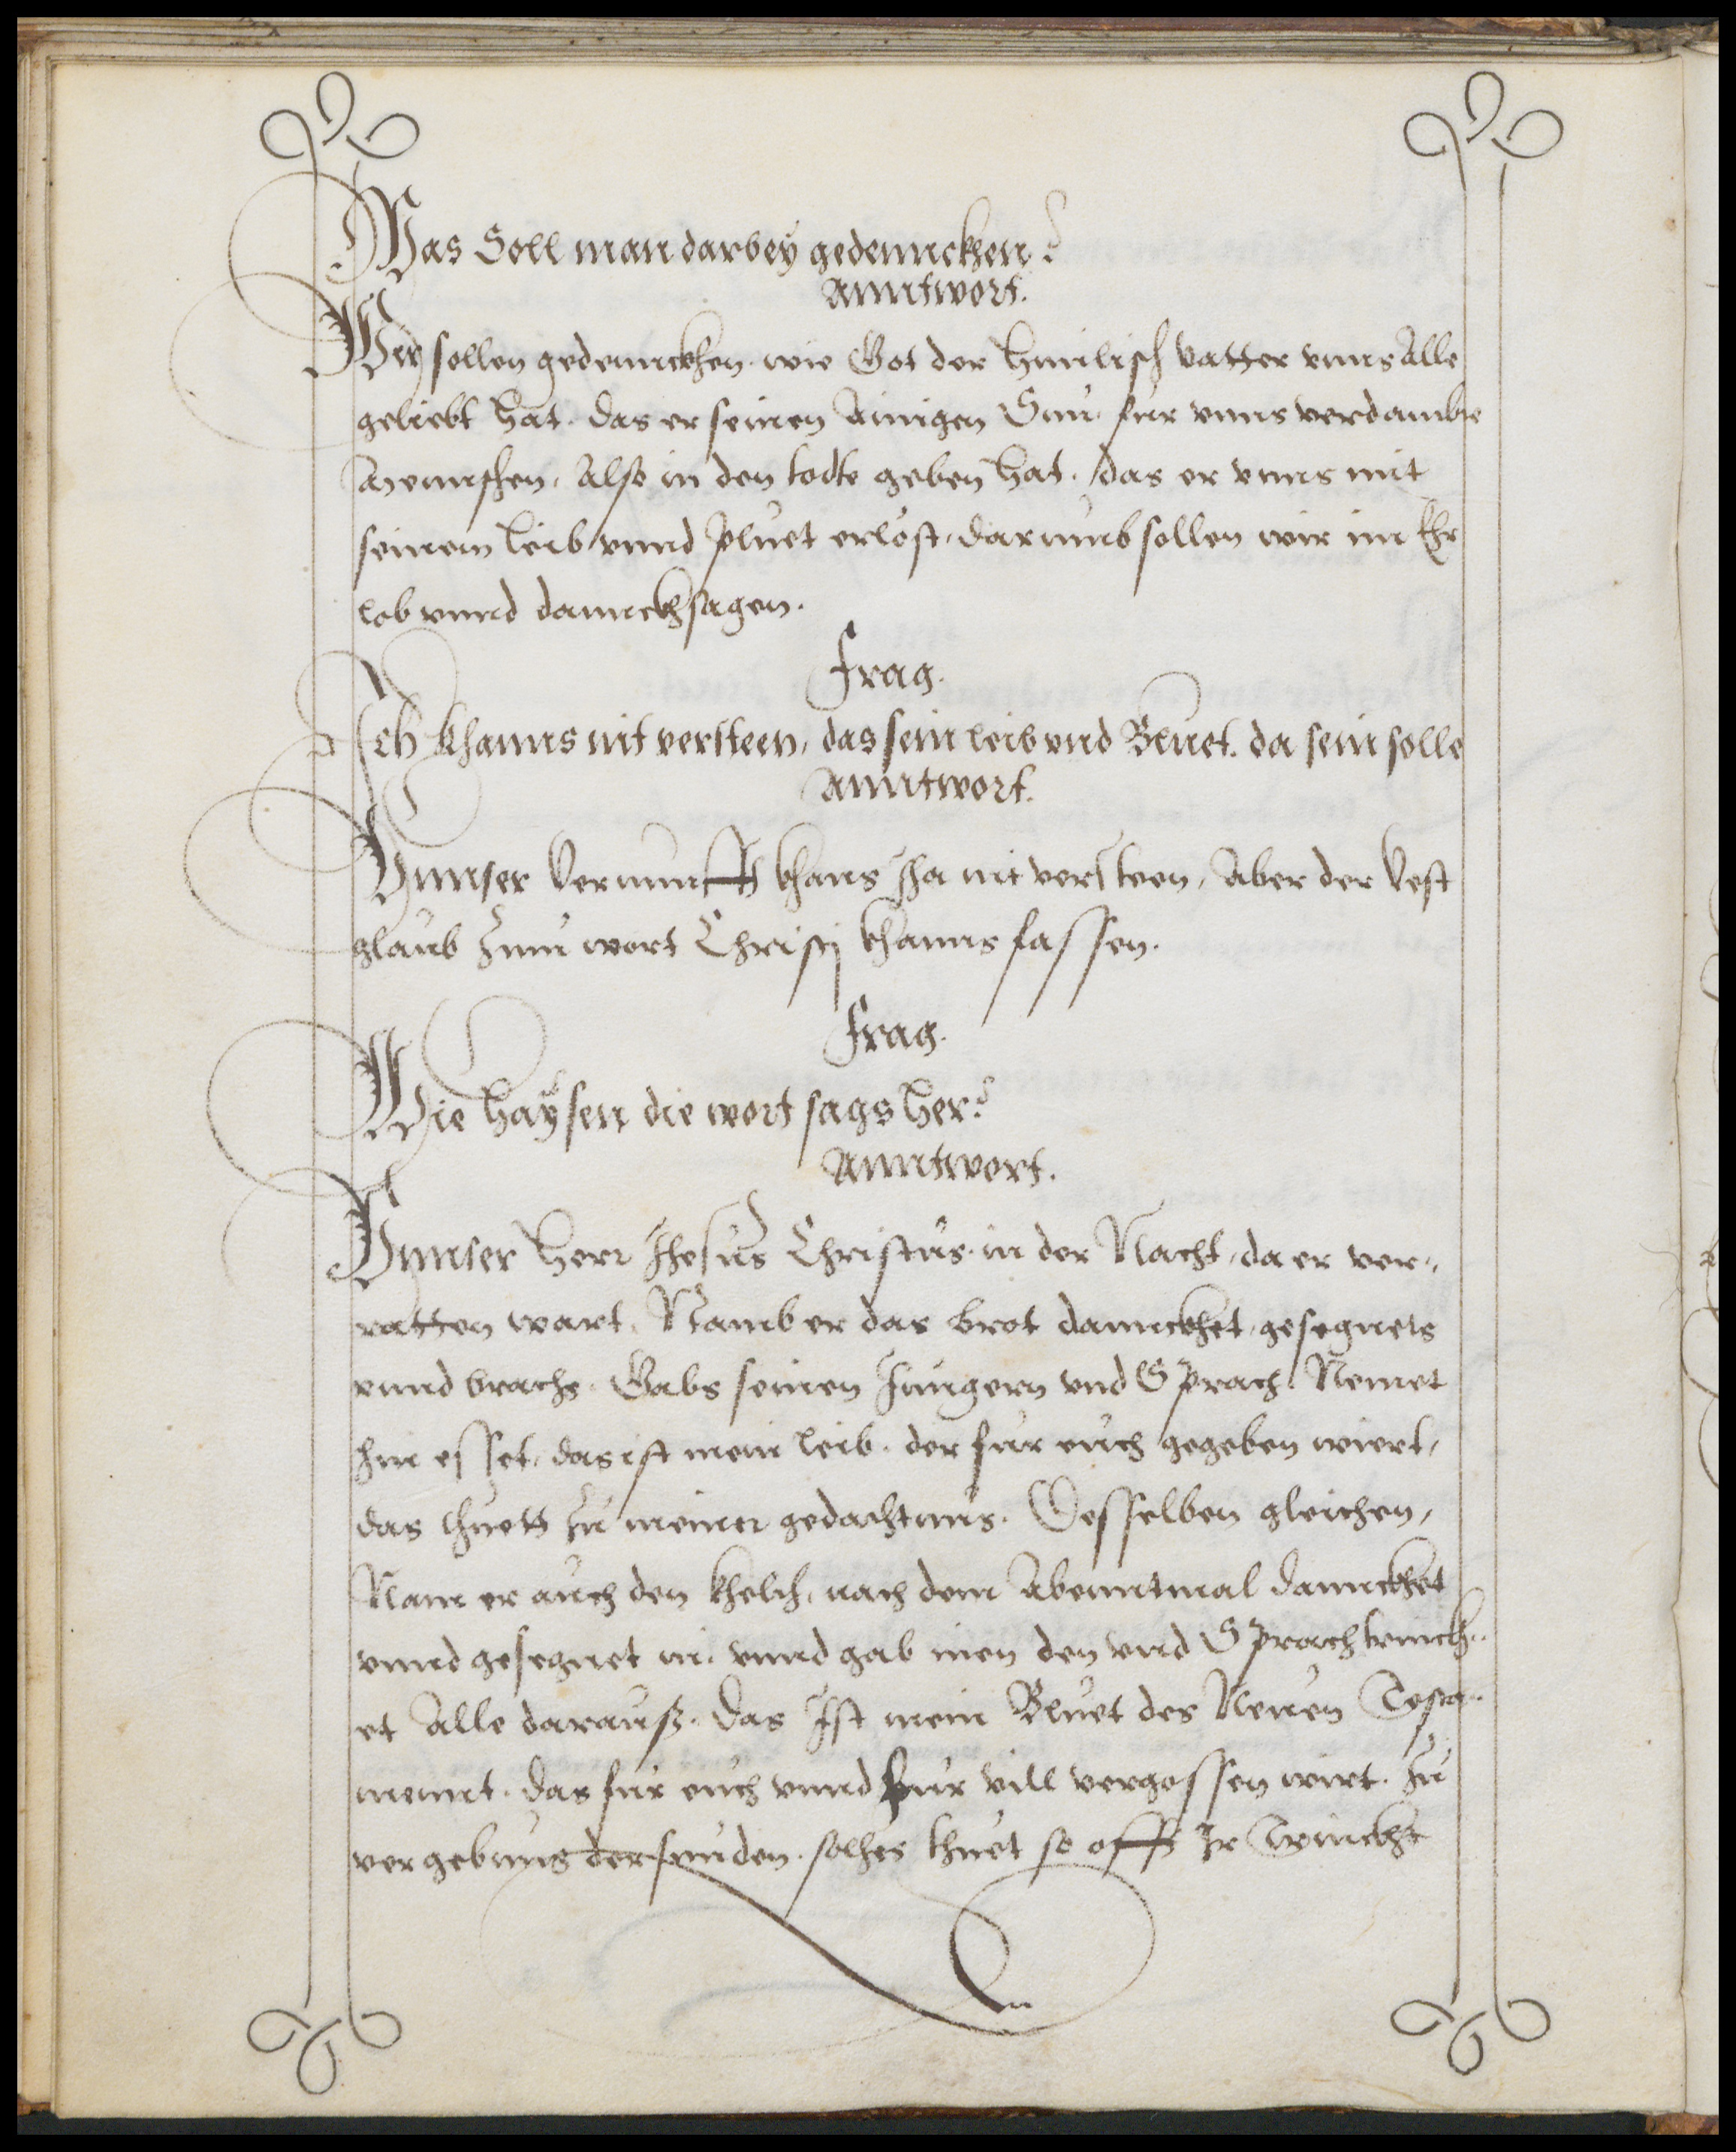 Was Soll man darbey gedennckhen?
Anntwort.
Wir sollen gedennckhen. wie Got der himlisch Vatter vnns Alle
geliebt hat. das er seinen Ainigen Sun. fur vnns verdambte
Mennschen. Also in den todte geben hat. das er vnns mit
seinem leib vnnd Pluet erlöst. darumb sollen wir im Ehr
lob vnnd dannckhsagen.
Frag.
Ich khanns nit versteen, das sein leib vnd Bluet. da sein solle
Anntwort.
Vnnser Vernunfft khans Ja nit versteen, Aber der Vest
glaub Zum wort Christj khanns fassen.
Frag.
Wie haysen die wort sags her?
Anntwort.
Vnnser herr Jhesus Christus. in der Nacht, da er ver,,
ratten wart. Namb er das brot dannckhet, gesegnets
vnnd brachs. Gabs seinen Jungern vnd Sprach. Nemet
hin esset, das ist mein leib. der fur euch gegeben wiert,
das thuett zu meiner gedachtnus. Desselben gleichen,
Nam er auch den khelch, nach dem Abenntmal dannckhet
vnnd gesegnet in. vnnd gab inen den vnd Sprach trinckh,,
et Alle darauß. das Ist mein Bluet des Neuen Testa,,
mennt. das fur euch vnnd fur vill vergossen wirt. Zu
vergebung der sunden. solhes thuet so offt Ir Trinckht